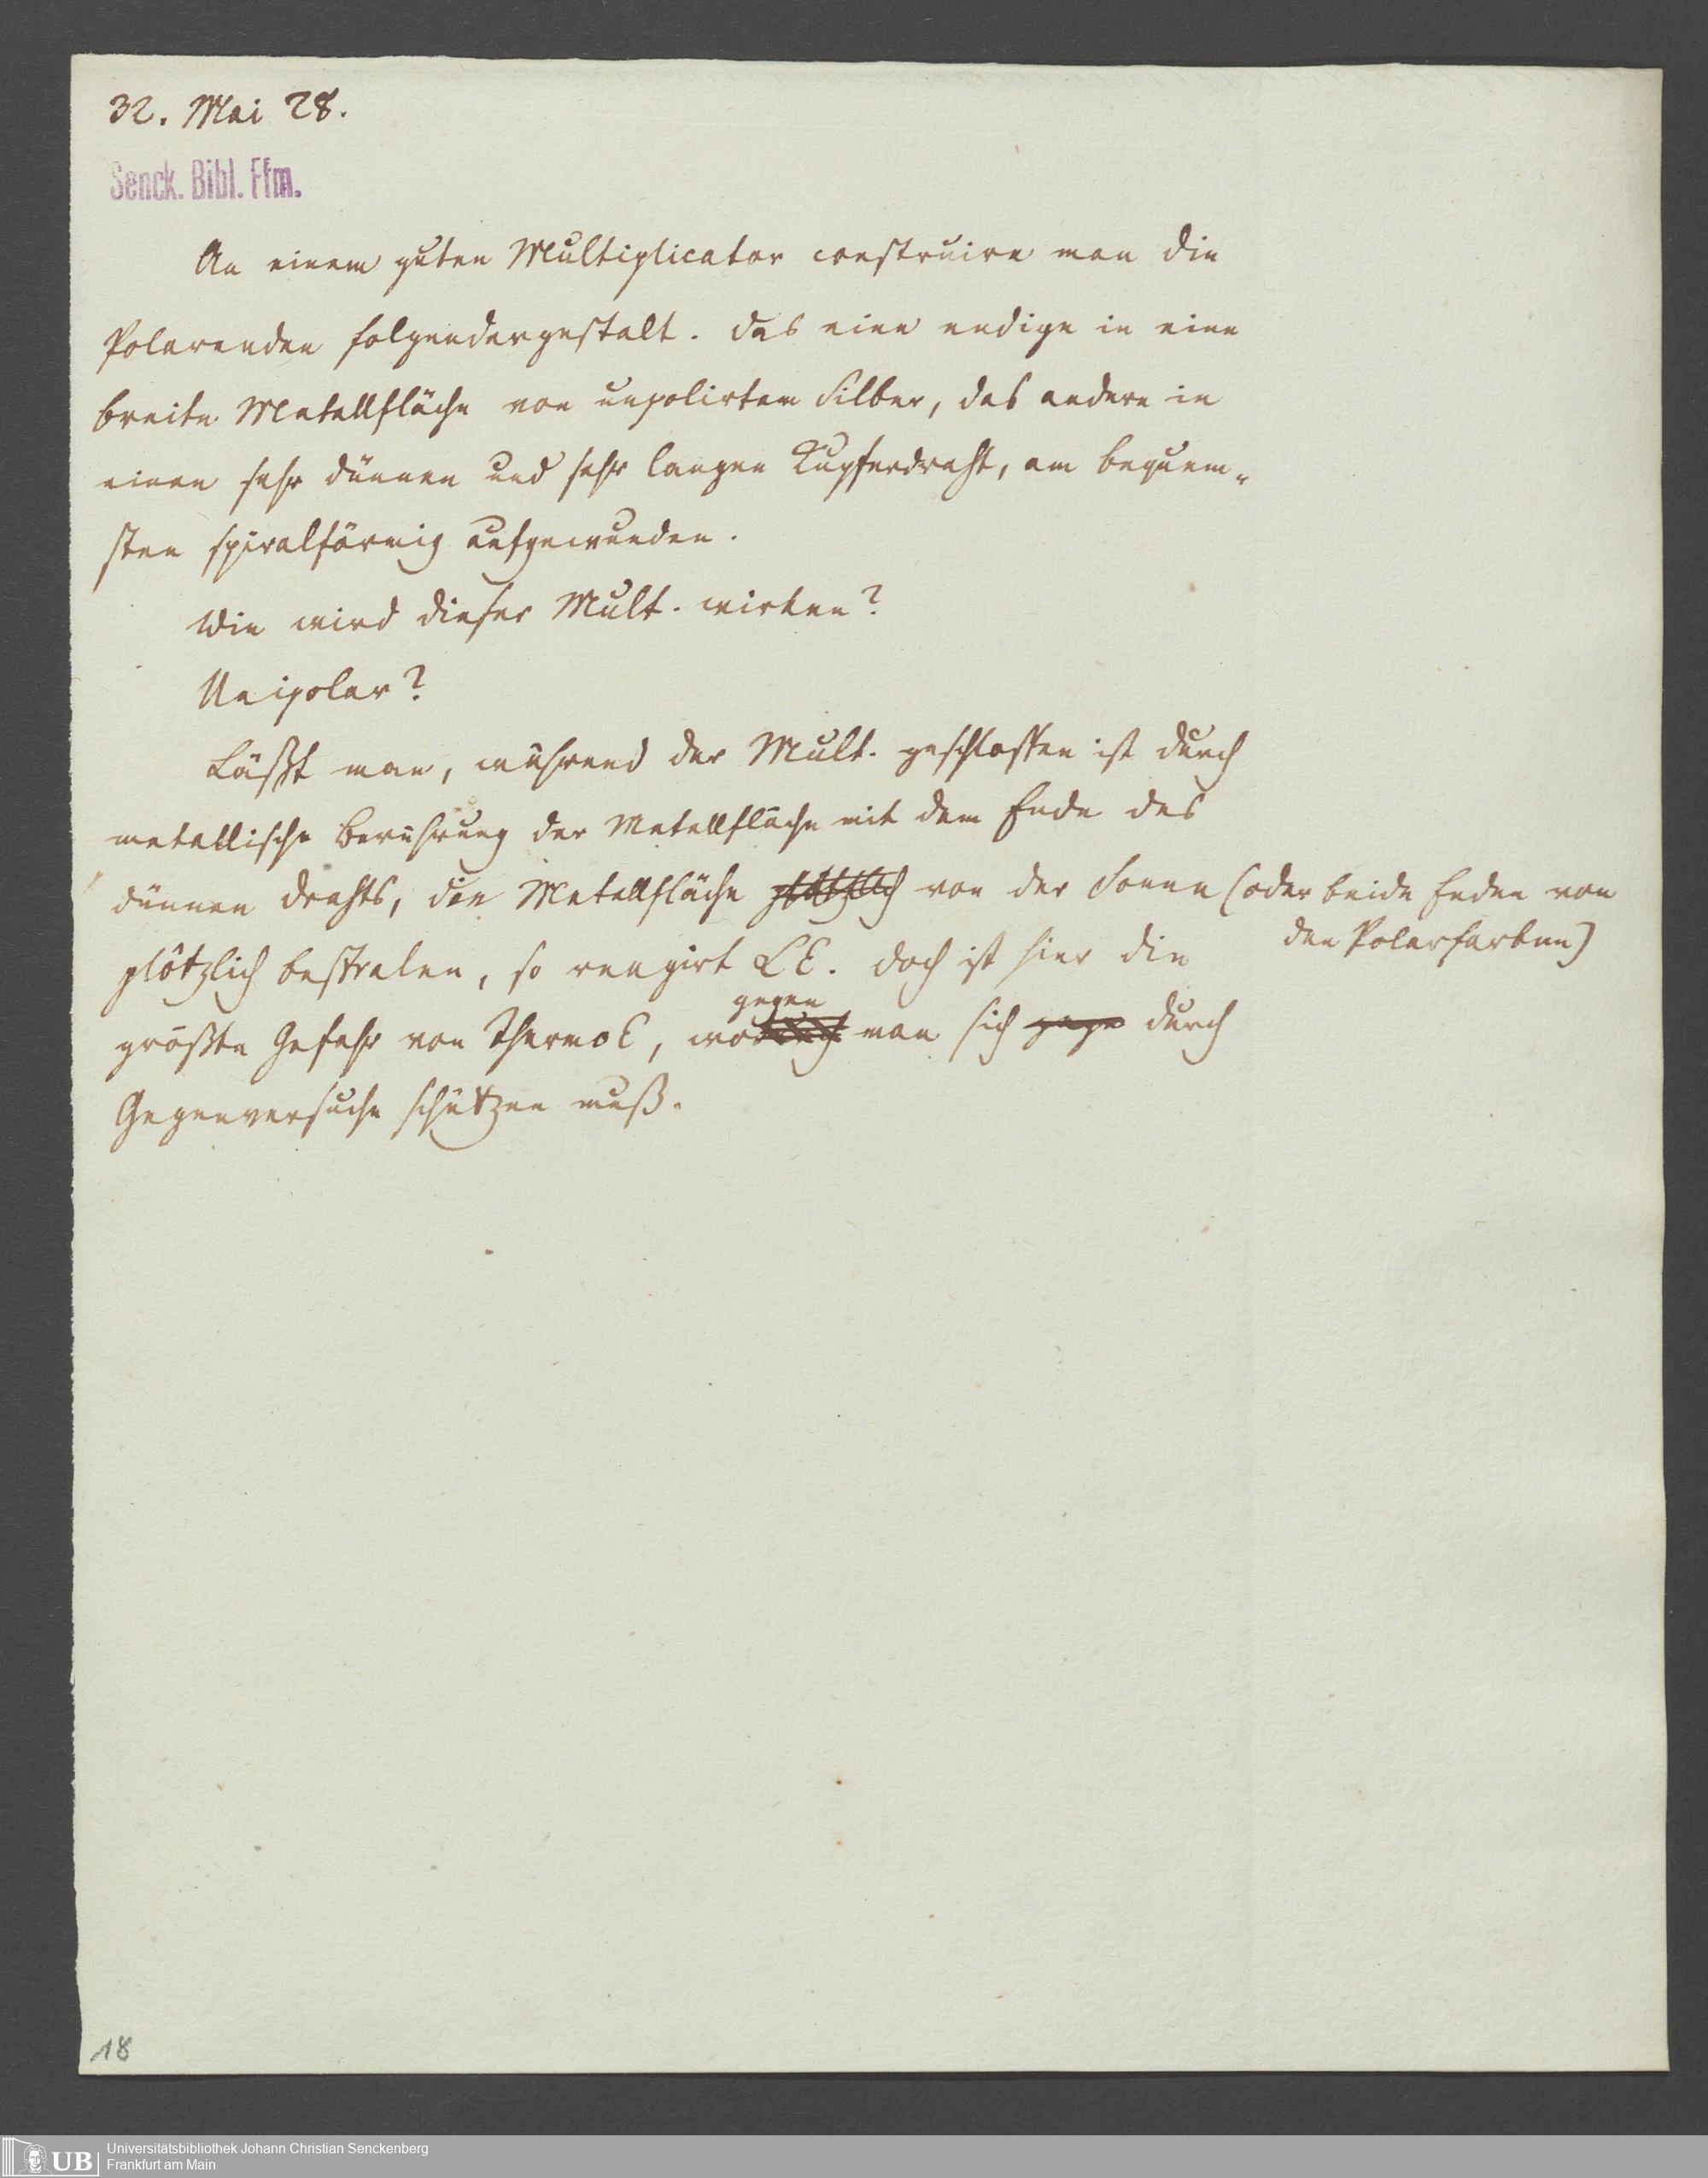 32. Mai 28.
Senck. Bibl. Ffm.
An einem guten Multiplicator construire man die
Polarenden folgendergestalt. Das eine endige in eine
breite Metallfläche von unpolirtem Silber, das andere in
einen sehr dünnen und sehr langen Kupferdraht, am bequem-
sten spiralförmig aufgewunden.
Wie wird dieser Mult. wirken?
Unipolar?
Läßt man, während der Mult. geschlossen ist durch
metallische Berührung der Metallfläche mit dem Ende des
dünnen Drahts, die Metallfläche plötzlich von der Sonne (oder beide Enden von
den Polarfarben)
plötzlich bestralen, so reagirt LE. Doch ist hier die
größte Gefahr von ThermoE, wodurch gegen man sich gege durch
Gegenversuche schützen muß.
18
UB
Universitätsbibliothek Johann Christian Senckenberg
Frankfurt am Main